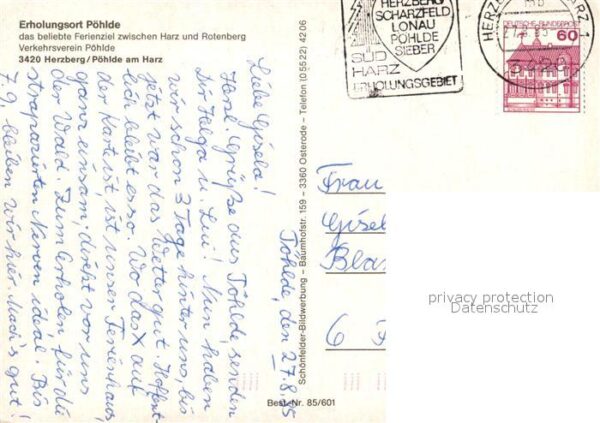 Erholungsort Pöhlde
das beliebte Ferienziel zwischen Harz und Rotenberg
Verkehrsverein Pöhlde
3420 Herzberg/Pöhlde am Harz
HERZBERG
SCHARZFELD
LONAU
PÖHLDE
SIEBER
SÜD
HARZ
ERHOLUNGSGEBIET
HERZBERG
HARZ 1
27.8.85
3420
DEUTSCHE BUNDESPOST
60
Pöhlde, den 27.8.85
Liebe Gisela!
Herzl. Grüße aus Pöhlde, senden
Dir Helga u. Lui! Nun haben
wir schon 3 Tage hinter uns, bis
jetzt war das Wetter gut. Hoffent-
lich bleibt es so. Wo das X auf
der Karte ist ist unser Ferienhaus,
ganz einsam, direkt vor uns
der Wald. Zum Erholen für die
strapazierten Nerven ideal. Bis
7.9. bleiben wir hier. Mach's gut!
Schönfelder-Bildwerbung – Baumhofstr. 159 – 3360 Osterode – Telefon (05522) 4206
Frau
Gisel
Bla
6 F
privacy protection
Datenschutz
Best.-Nr. 85/601